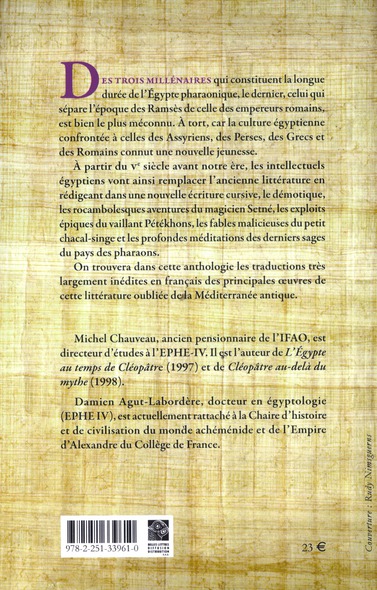 DES TROIS MILLÉNAIRES qui constituent la longue
durée de l'Égypte pharaonique, le dernier, celui qui
sépare l'époque des Ramsès de celle des empereurs romains,
est bien le plus méconnu. À tort, car la culture égyptienne
confrontée à celles des Assyriens, des Perses, des Grecs et
des Romains connut une nouvelle jeunesse.
À partir du Vᵉ siècle avant notre ère, les intellectuels
égyptiens vont ainsi remplacer l'ancienne littérature en
rédigeant dans une nouvelle écriture cursive, le démotique,
les rocambolesques aventures du magicien Setné, les exploits
épiques du vaillant Pétékhons, les fables malicieuses du petit
chacal-singe et les profondes méditations des derniers sages
du pays des pharaons.
On trouvera dans cette anthologie les traductions très
largement inédites en français des principales œuvres de
cette littérature oubliée de la Méditerranée antique.
Michel Chauveau, ancien pensionnaire de l'IFAO, est
directeur d'études à l'EPHE-IV. Il est l'auteur de L'Égypte
au temps de Cléopâtre (1997) et de Cléopâtre au-delà du
mythe (1998).
Damien Agut-Labordère, docteur en égyptologie
(EPHE IV), est actuellement rattaché à la Chaire d'histoire
et de civilisation du monde achéménide et de l'Empire
d'Alexandre du Collège de France.
Couverture : Rudy Nimiguerns
BELLES LETTRES
DIFFUSION
DISTRIBUTION
978-2-251-33961-0
23 €